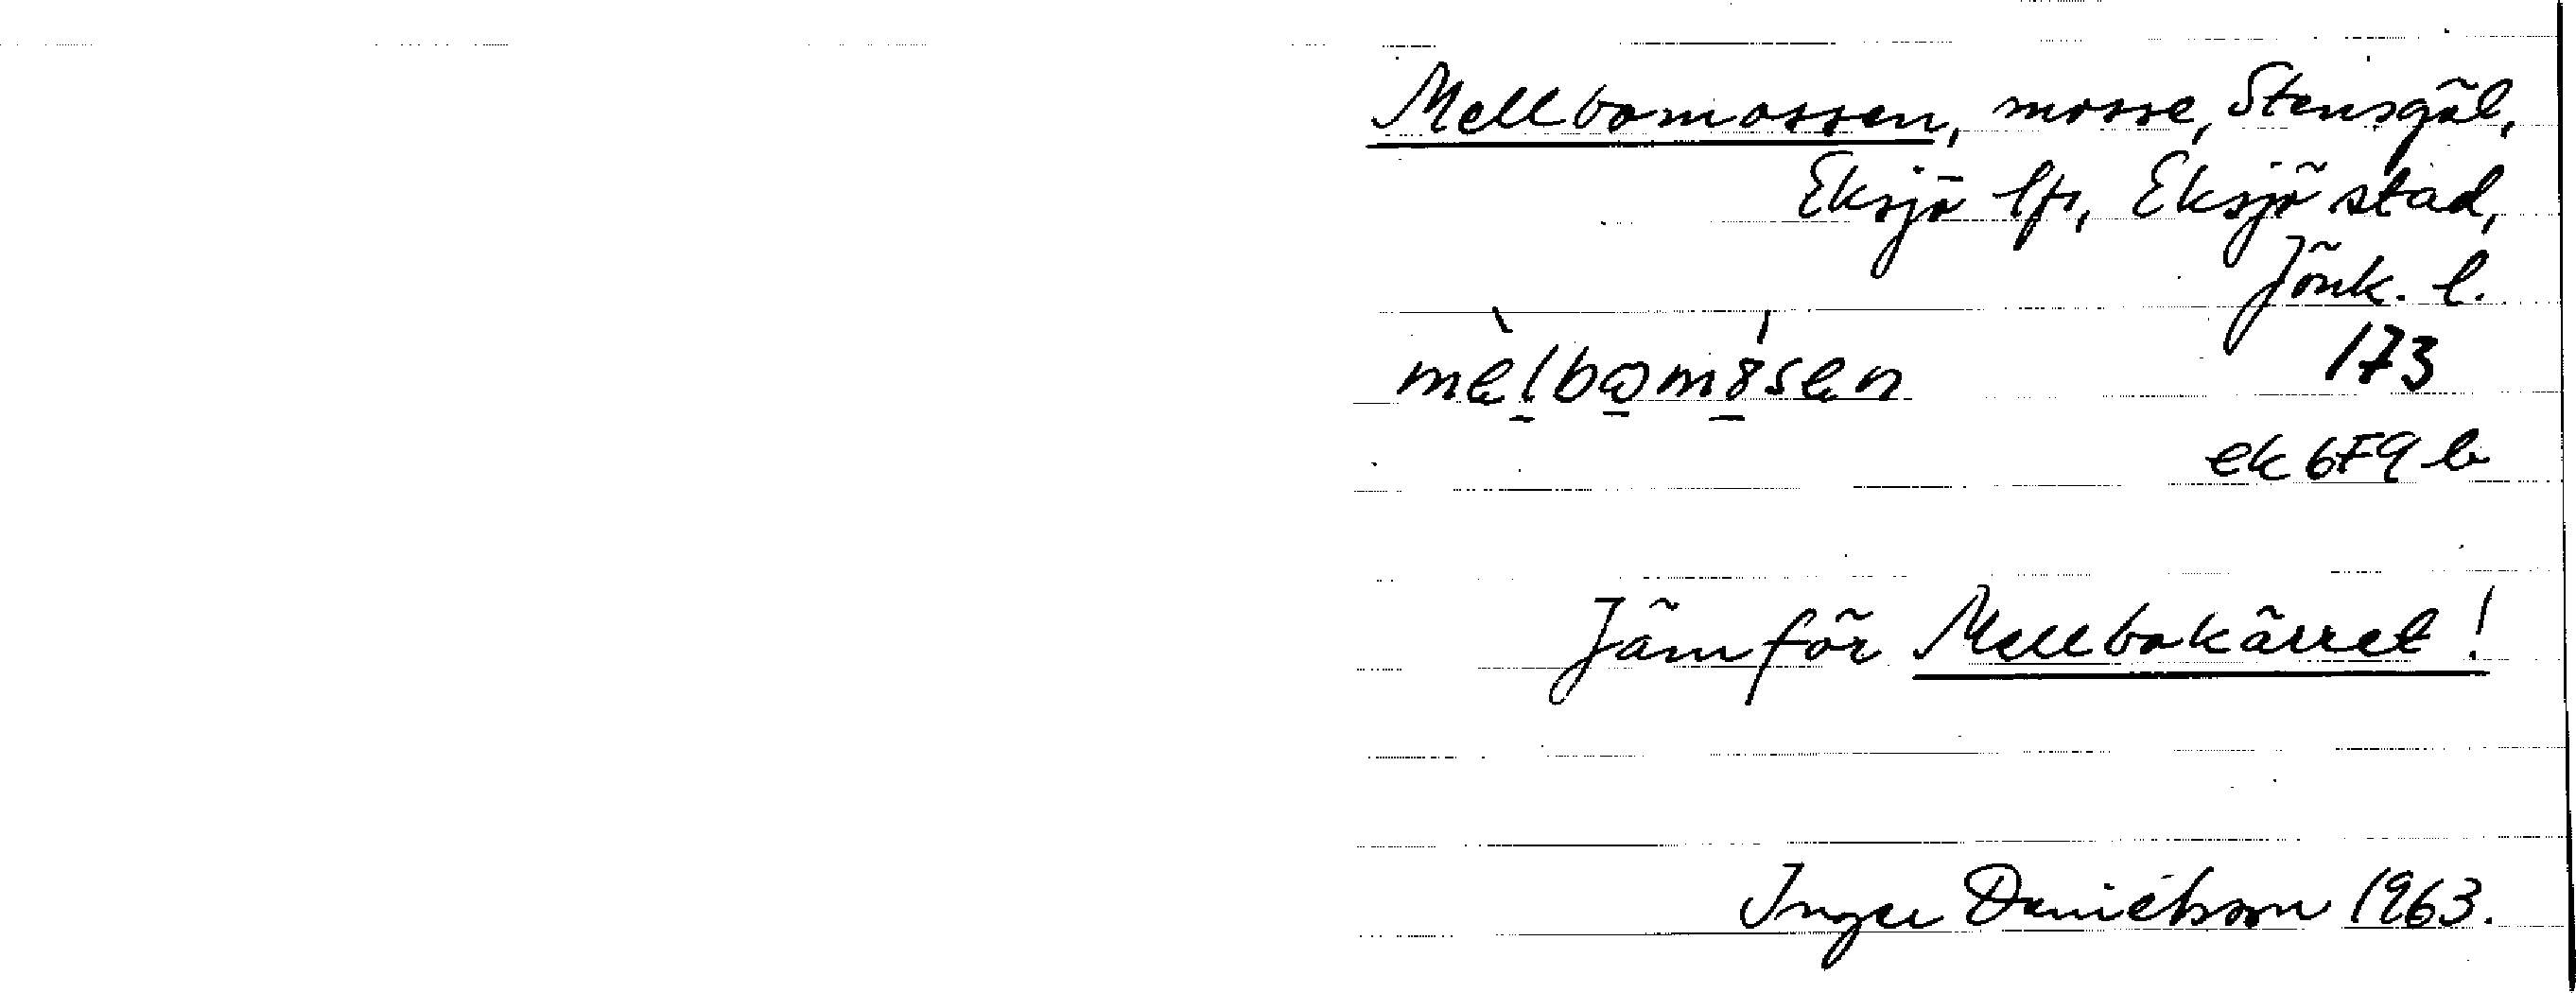 Mellbomossen, mosse, Stensgöl,
Eksjö lfs, Eksjö stad,
Jönk. l.
173
mèlbωmósen
ek 6F9 b
Jämför Mellbokärret!
Inger Danielsson 1963.